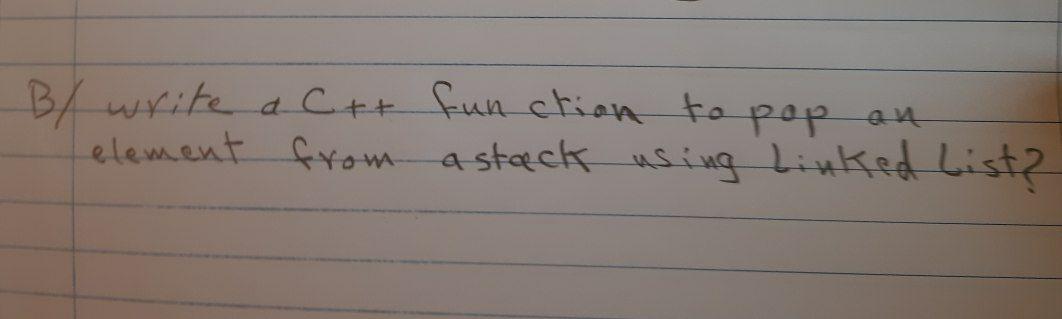 B/ write a C++ function to pop an
element from a stack using Linked List?